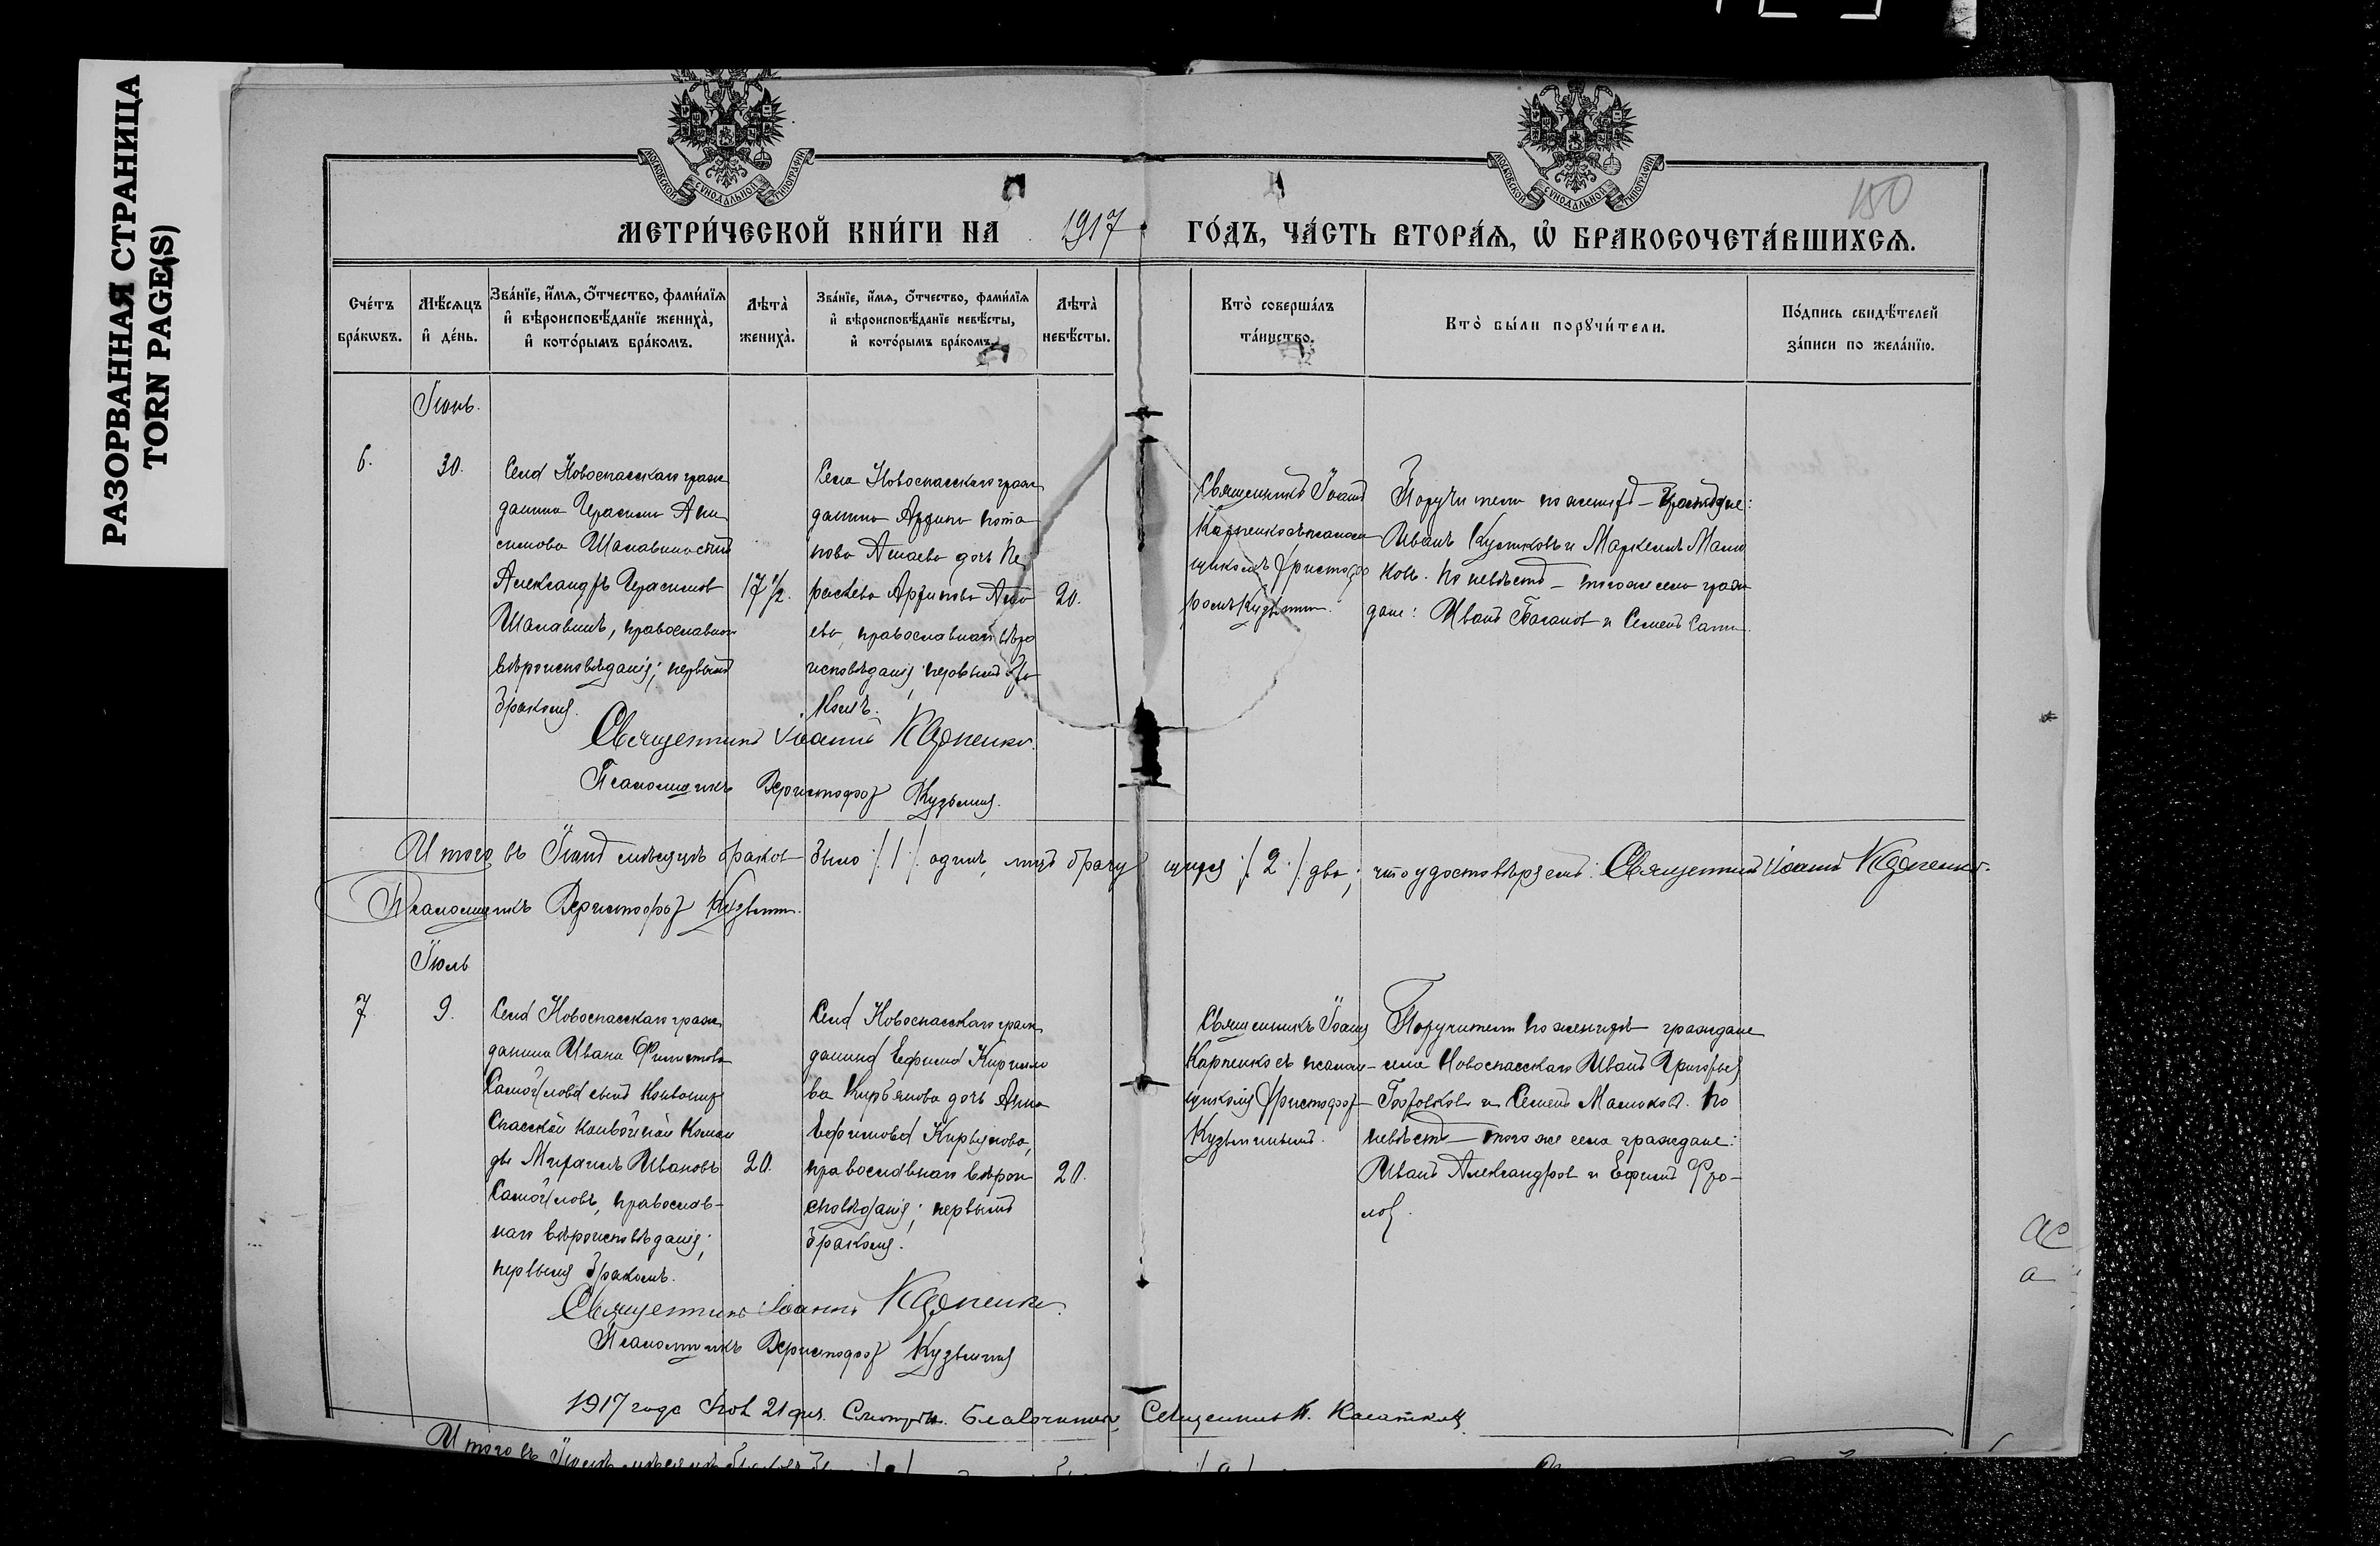 РАЗОРВАННАЯ СТРАНИЦА
TORN PAGE(S)
150
МОСКОВСКОЙ СѴНОДАЛЬНОЙ ТИПОГРАФІИ
МОСКОВСКОЙ СѴНОДАЛЬНОЙ ТИПОГРАФІИ
МЕТРИ́ЧЕСКОЙ КНИ́ГИ НА 1917 ГО́ДЪ, ЧА́СТЬ ВТОРА́Я, Ѡ҆ БРАКОСОЧЕТА́ВШИХСЯ.
Сче́тъ
бра́кѡвъ.
Мѣ́сяцъ
и҆ де́нь.
Зва́нїе, и҆́мя, ѻ҆́тчество, фами́лїя
и҆ вѣроисповѣ́данїе жениха̀,
и҆ кото́рымъ бра́комъ.
Лѣта̀
жениха̀.
Зва́нїе, и҆́мя, ѻ҆́тчество, фами́лїя
и҆ вѣроисповѣ́данїе невѣ́сты,
и҆ кото́рымъ бра́комъ.
Лѣта̀
невѣ́сты.
Кто̀ соверша́лъ
та́инство.
Кто̀ бы́ли порꙋчи́тели.
По́дпись свидѣ́телей
за́писи по жела́нїю.
Іюнь.
6.
30.
Села Новоспасскаго граж
данина Герасима Ани
симова Шалавина сынъ
Александръ Герасимов
Шалавинъ, православнаго
вѣроисповѣданія; первымъ
бракомъ.
17 1/2.
Села Новоспасскаго граж
данина Архипа Пота
пова Агаева дочь Па
раскева Архипова Ага
ева, православнаго вѣро
исповѣданія; первымъ бра
комъ.
20.
Священникъ Іоаннъ
Карпенко съ псалом
щикомъ Христофо
ромъ Кузьминым.
Поручители по женихѣ - граждане:
Иванъ Кустиковъ и Маркелъ Масло
ковъ. По невѣстѣ - того же села граж
дане: Иванъ Баганов и Семенъ
Священникъ Іоаннъ Карпенко.
Псаломщикъ Христофор Кузьмин.
Итого въ Іюнѣ мѣсяцѣ браков было /1/ одинъ, лицъ брачу щихся /2/ два; что удостовѣряемъ: Священникъ Іоаннъ Карпенко.
Псаломщикъ Христофор Кузьмин.
Іюль
7
9.
Села Новоспасскаго граж
данина Ивана Филиппова
сынъ Конвоиръ
Спасской конвойной коман
ды Михаилъ Ивановъ
православ-
наго вѣроисповѣданія;
первымъ бракомъ.
20.
Села Новоспасскаго граж
данина Ефима Кирилло
ва Кирьянова дочь Анна
Ефимова Кирьянова,
православнаго вѣрои
сповѣданія; первымъ
бракомъ.
20.
Священникъ Іоаннъ
Карпенко съ псалом-
щикомъ Христофор
Кузьминымъ.
Поручители по женихѣ граждане
села Новоспасскаго Иванъ Григорьев
и Семенъ Маслоков. По
невѣстѣ - того же села граждане:
Иванъ Александров и Ефимъ Фро-
лов.
Священникъ Іоаннъ Карпенко.
Псаломщикъ Христофор Кузьмин
1917 года 21 дня. Смотрѣлъ. Благочинный Священникъ П.
Итого въ Іюлѣ мѣсяцѣ браковъ